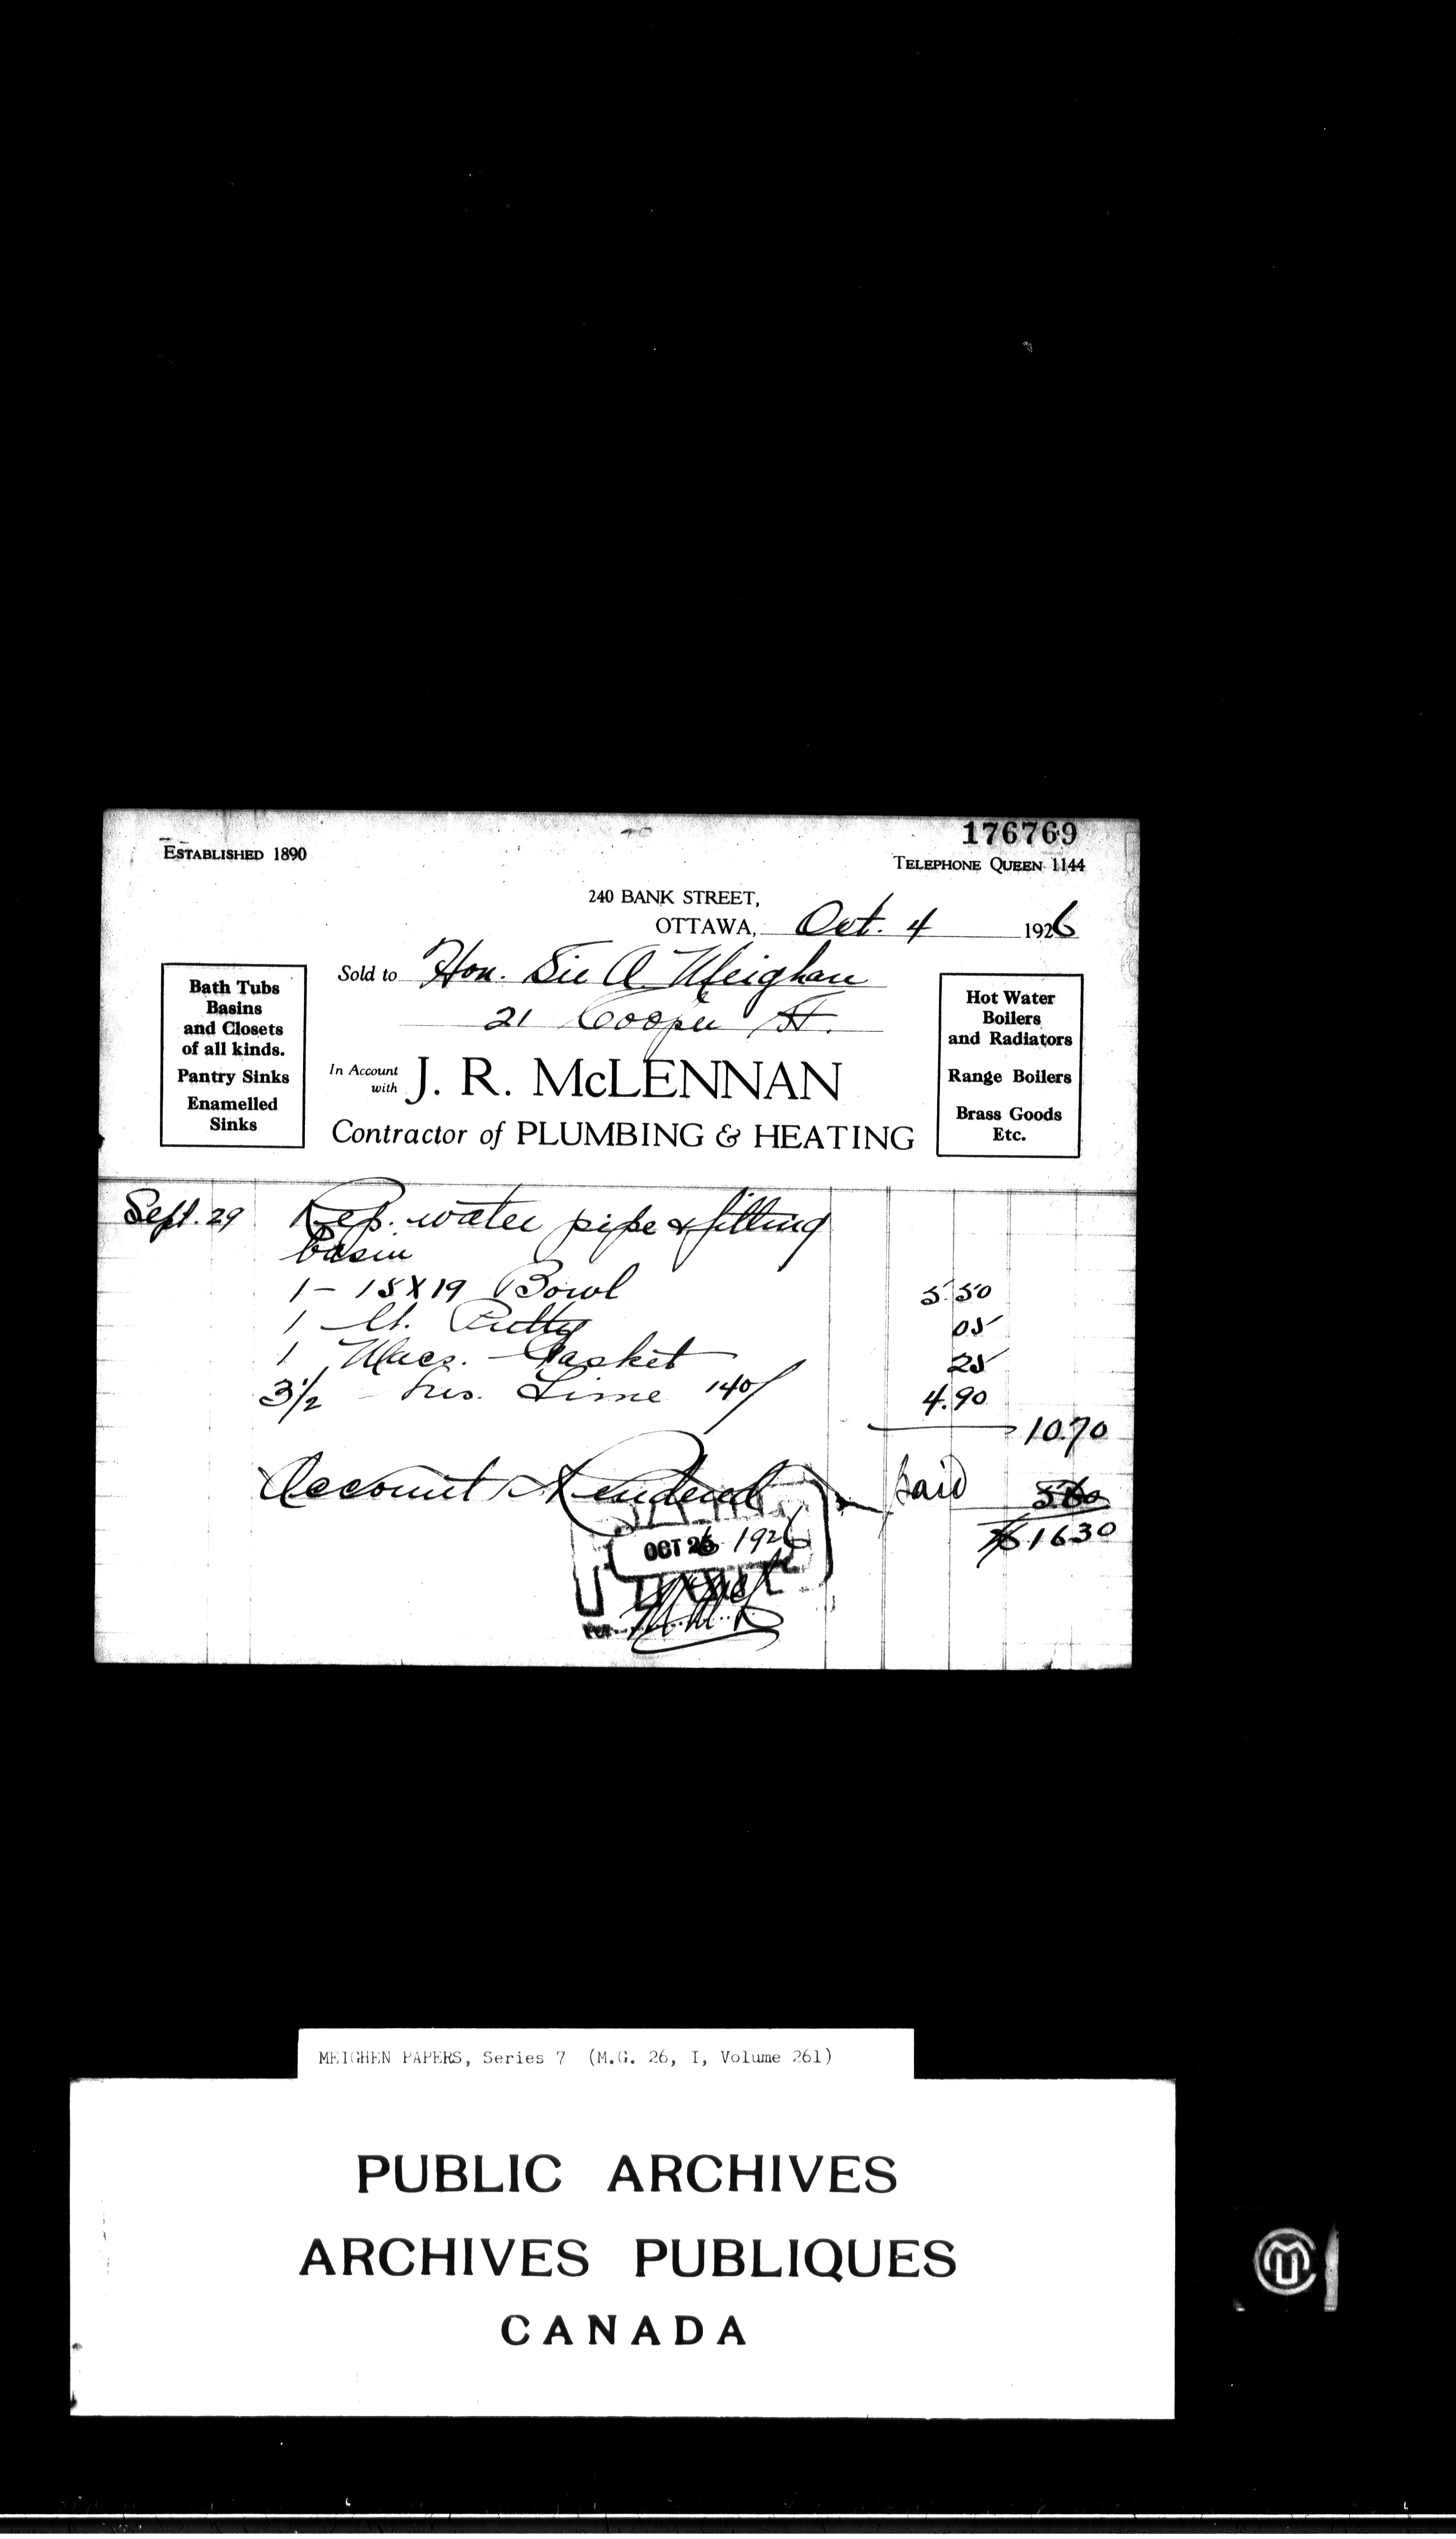 176769
ESTABLISHED 1890
TELEPHONE QUEEN 1144
240 BANK STREET,
OTTAWA, Oct. 4 1926
Sold to Hon. Sir A. Meighan
21 Cooper St.
Bath Tubs
Basins
and Closets
of all kinds.
Pantry Sinks
Enamelled
Sinks
In Account
with J. R. McLENNAN
Contractor of PLUMBING & HEATING
Hot Water
Boilers
and Radiators
Range Boilers
Brass Goods
Etc.
Sept. 29 Rep. water pipe & fitting
basin
1 - 15 X 19 Bowl 5.50
1 lb. Putty 05
1 Gasket 25
3 1/2 hrs. Time 140/ 4.90
10.70
Account Rendered paid 5.60
$16.30
OCT 26 1926
MEIGHEN PAPERS, Series 7 (M.G. 26, I, Volume 261)
PUBLIC ARCHIVES
ARCHIVES PUBLIQUES
CANADA